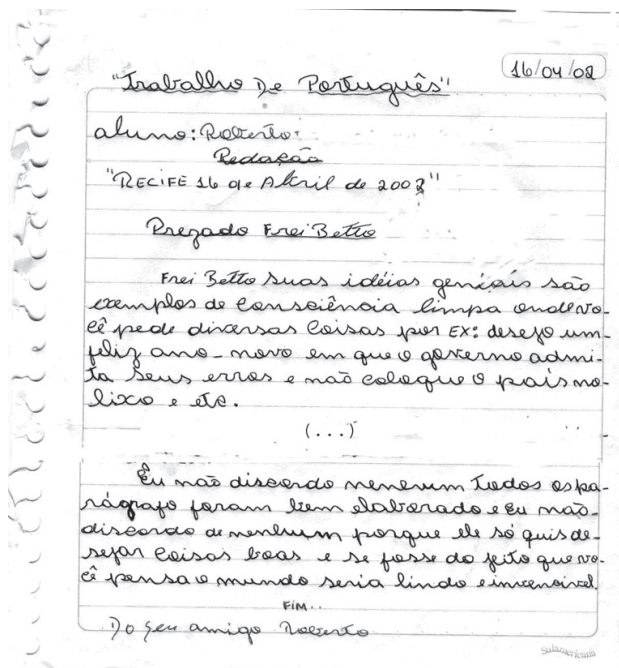 16/04/02
"Trabalho De Português"
aluno: Roberto.
Redação
"RECIFE 16 de Abril de 2002"
Prezado Frei Betto
Frei Betto suas idéias geniais são
exemplos de consciência limpa onde vo-
cê pede diversas coisas por EX: desejo um
feliz ano-novo em que o governo admi-
ta seus erros e não coloque o país no
lixo e etc.
(...)
Eu não discordo nenenum Todos os pa-
rágrafo foram bem elaborado e eu não
discordo de nenhum porque ele só quis de-
sejar coisas boas e se fosse do jeito que vo-
cê pensa o mundo seria lindo e invencivel.
FIM..
Do seu amigo Roberto
Sulamericana